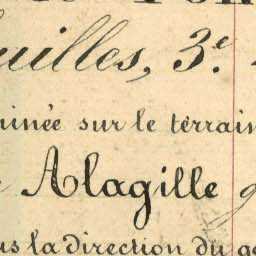 uilles, 3e
minée sur le terrain
Alagille
us la direction du g